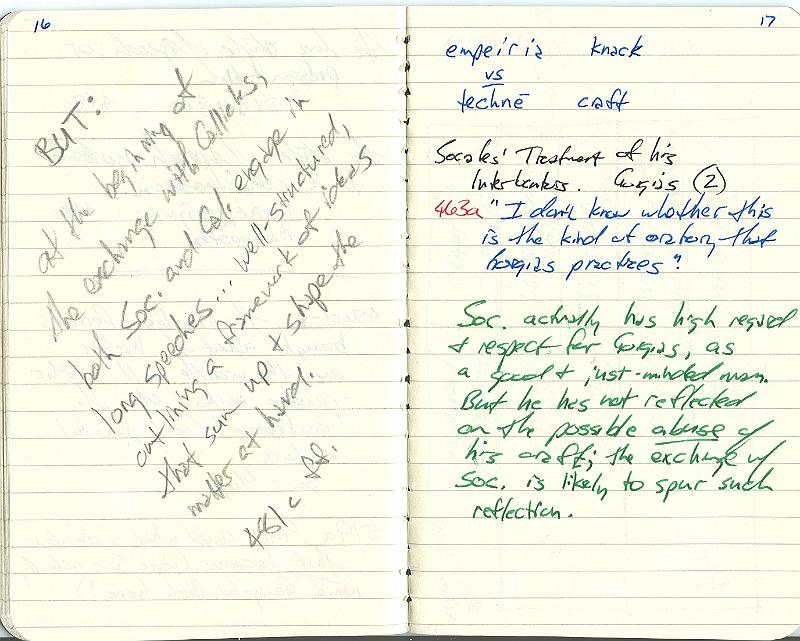 16
BUT:
at the beginning of
the exchange with Callicles,
both Soc. and Cal. engage in
long speeches... well-structured,
outlining a framework of ideas
that sum up & shape the
matter at hand.
481c ff.
17
empeiria knack
vs
technē craft
Socrates' Treatment of his
Interlocutors. Gorgias (2)
463a "I don't know whether this
is the kind of oratory that
Gorgias practices".
Soc. actually has high regard
& respect for Gorgias, as
a good & just-minded man.
But he has not reflected
on the possible abuse of
his craft; the exchange w/
Soc. is likely to spur such
reflection.